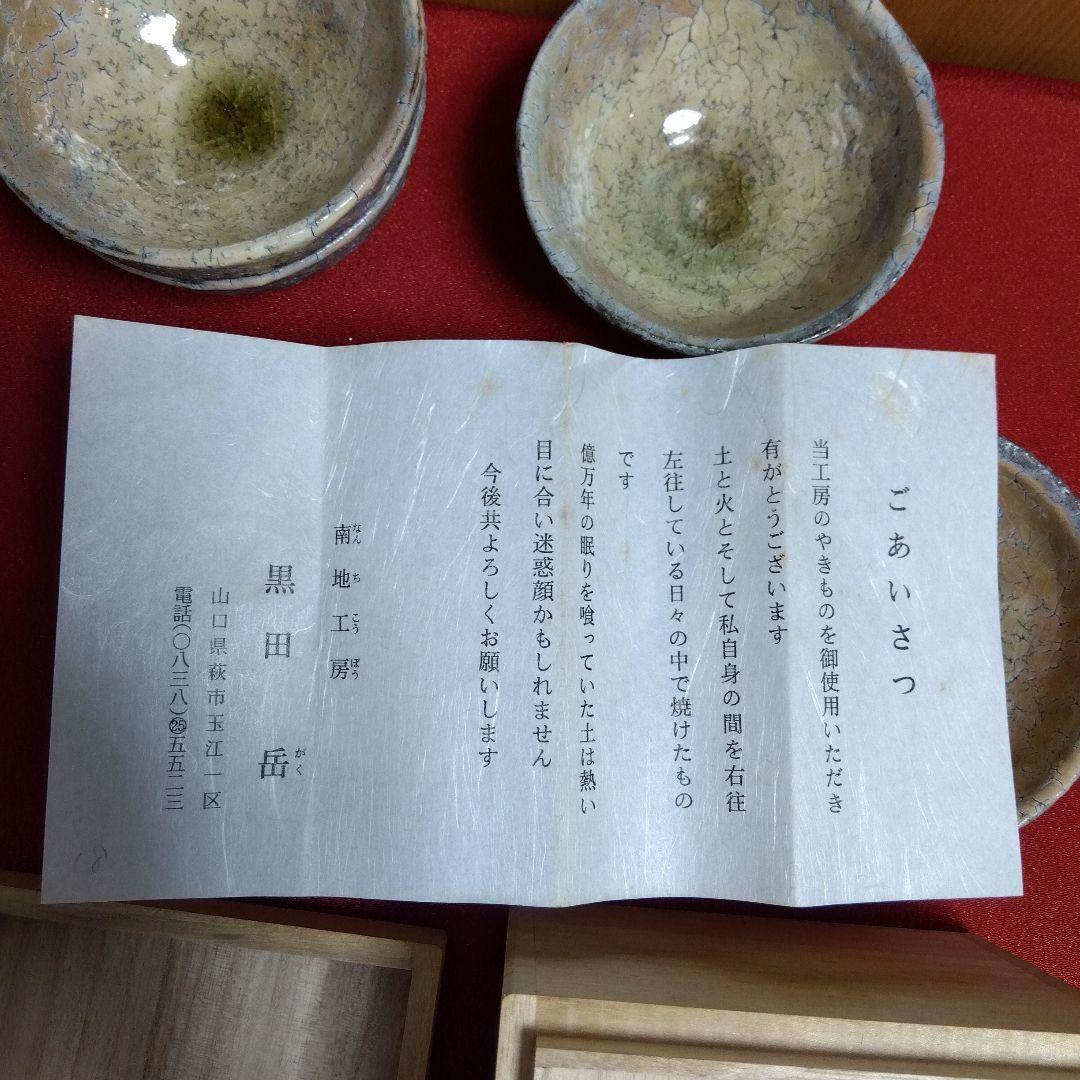 ごあいさつ
当工房のやきものを御使用いただき
有がとうございます
土と火とそして私自身の間を右往
左往している日々の中で焼けたもの
です
億万年の眠りを喰っていた土は熱い
目に合い迷惑顔かもしれません
今後共よろしくお願いします
南地工房
なんちこうぼう
黒田 岳
がく
山口県萩市玉江一区
電話(〇八三八)㉕五五二三